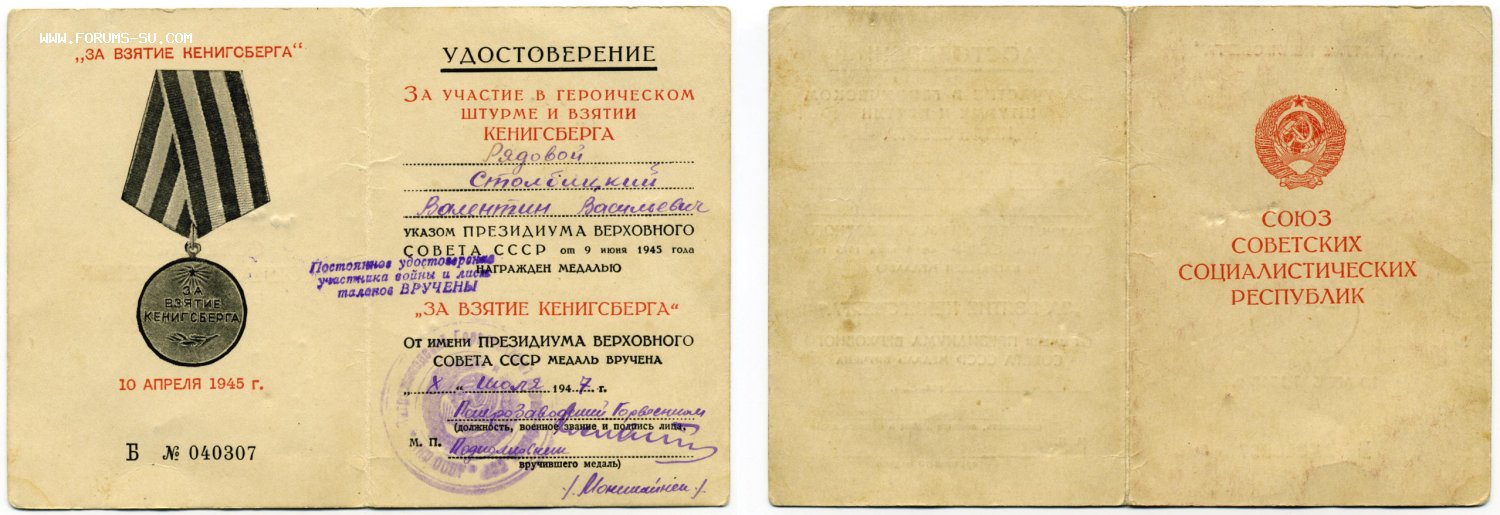 WWW.FORUMS-SU.COM
„ЗА ВЗЯТИЕ КЕНИГСБЕРГА“
ЗА
ВЗЯТИЕ
КЕНИГСБЕРГА
10 АПРЕЛЯ 1945 г.
Б № 040307
УДОСТОВЕРЕНИЕ
ЗА УЧАСТИЕ В ГЕРОИЧЕСКОМ
ШТУРМЕ И ВЗЯТИИ
КЕНИГСБЕРГА
Рядовой
Столбицкий
Валентин Васильевич
УКАЗОМ ПРЕЗИДИУМА ВЕРХОВНОГО
СОВЕТА СССР от 9 июня 1945 года
НАГРАЖДЕН МЕДАЛЬЮ
Постоянное удостоверение
участника войны и лист
талонов ВРУЧЕНЫ
„ЗА ВЗЯТИЕ КЕНИГСБЕРГА“
ОТ ИМЕНИ ПРЕЗИДИУМА ВЕРХОВНОГО
СОВЕТА СССР МЕДАЛЬ ВРУЧЕНА
„X“ июля 1947 г.
Петрозаводский Горвоенком
(должность, военное звание и подпись лица,
М. П. Подполковник
вручившего медаль)
СОЮЗ
СОВЕТСКИХ
СОЦИАЛИСТИЧЕСКИХ
РЕСПУБЛИК